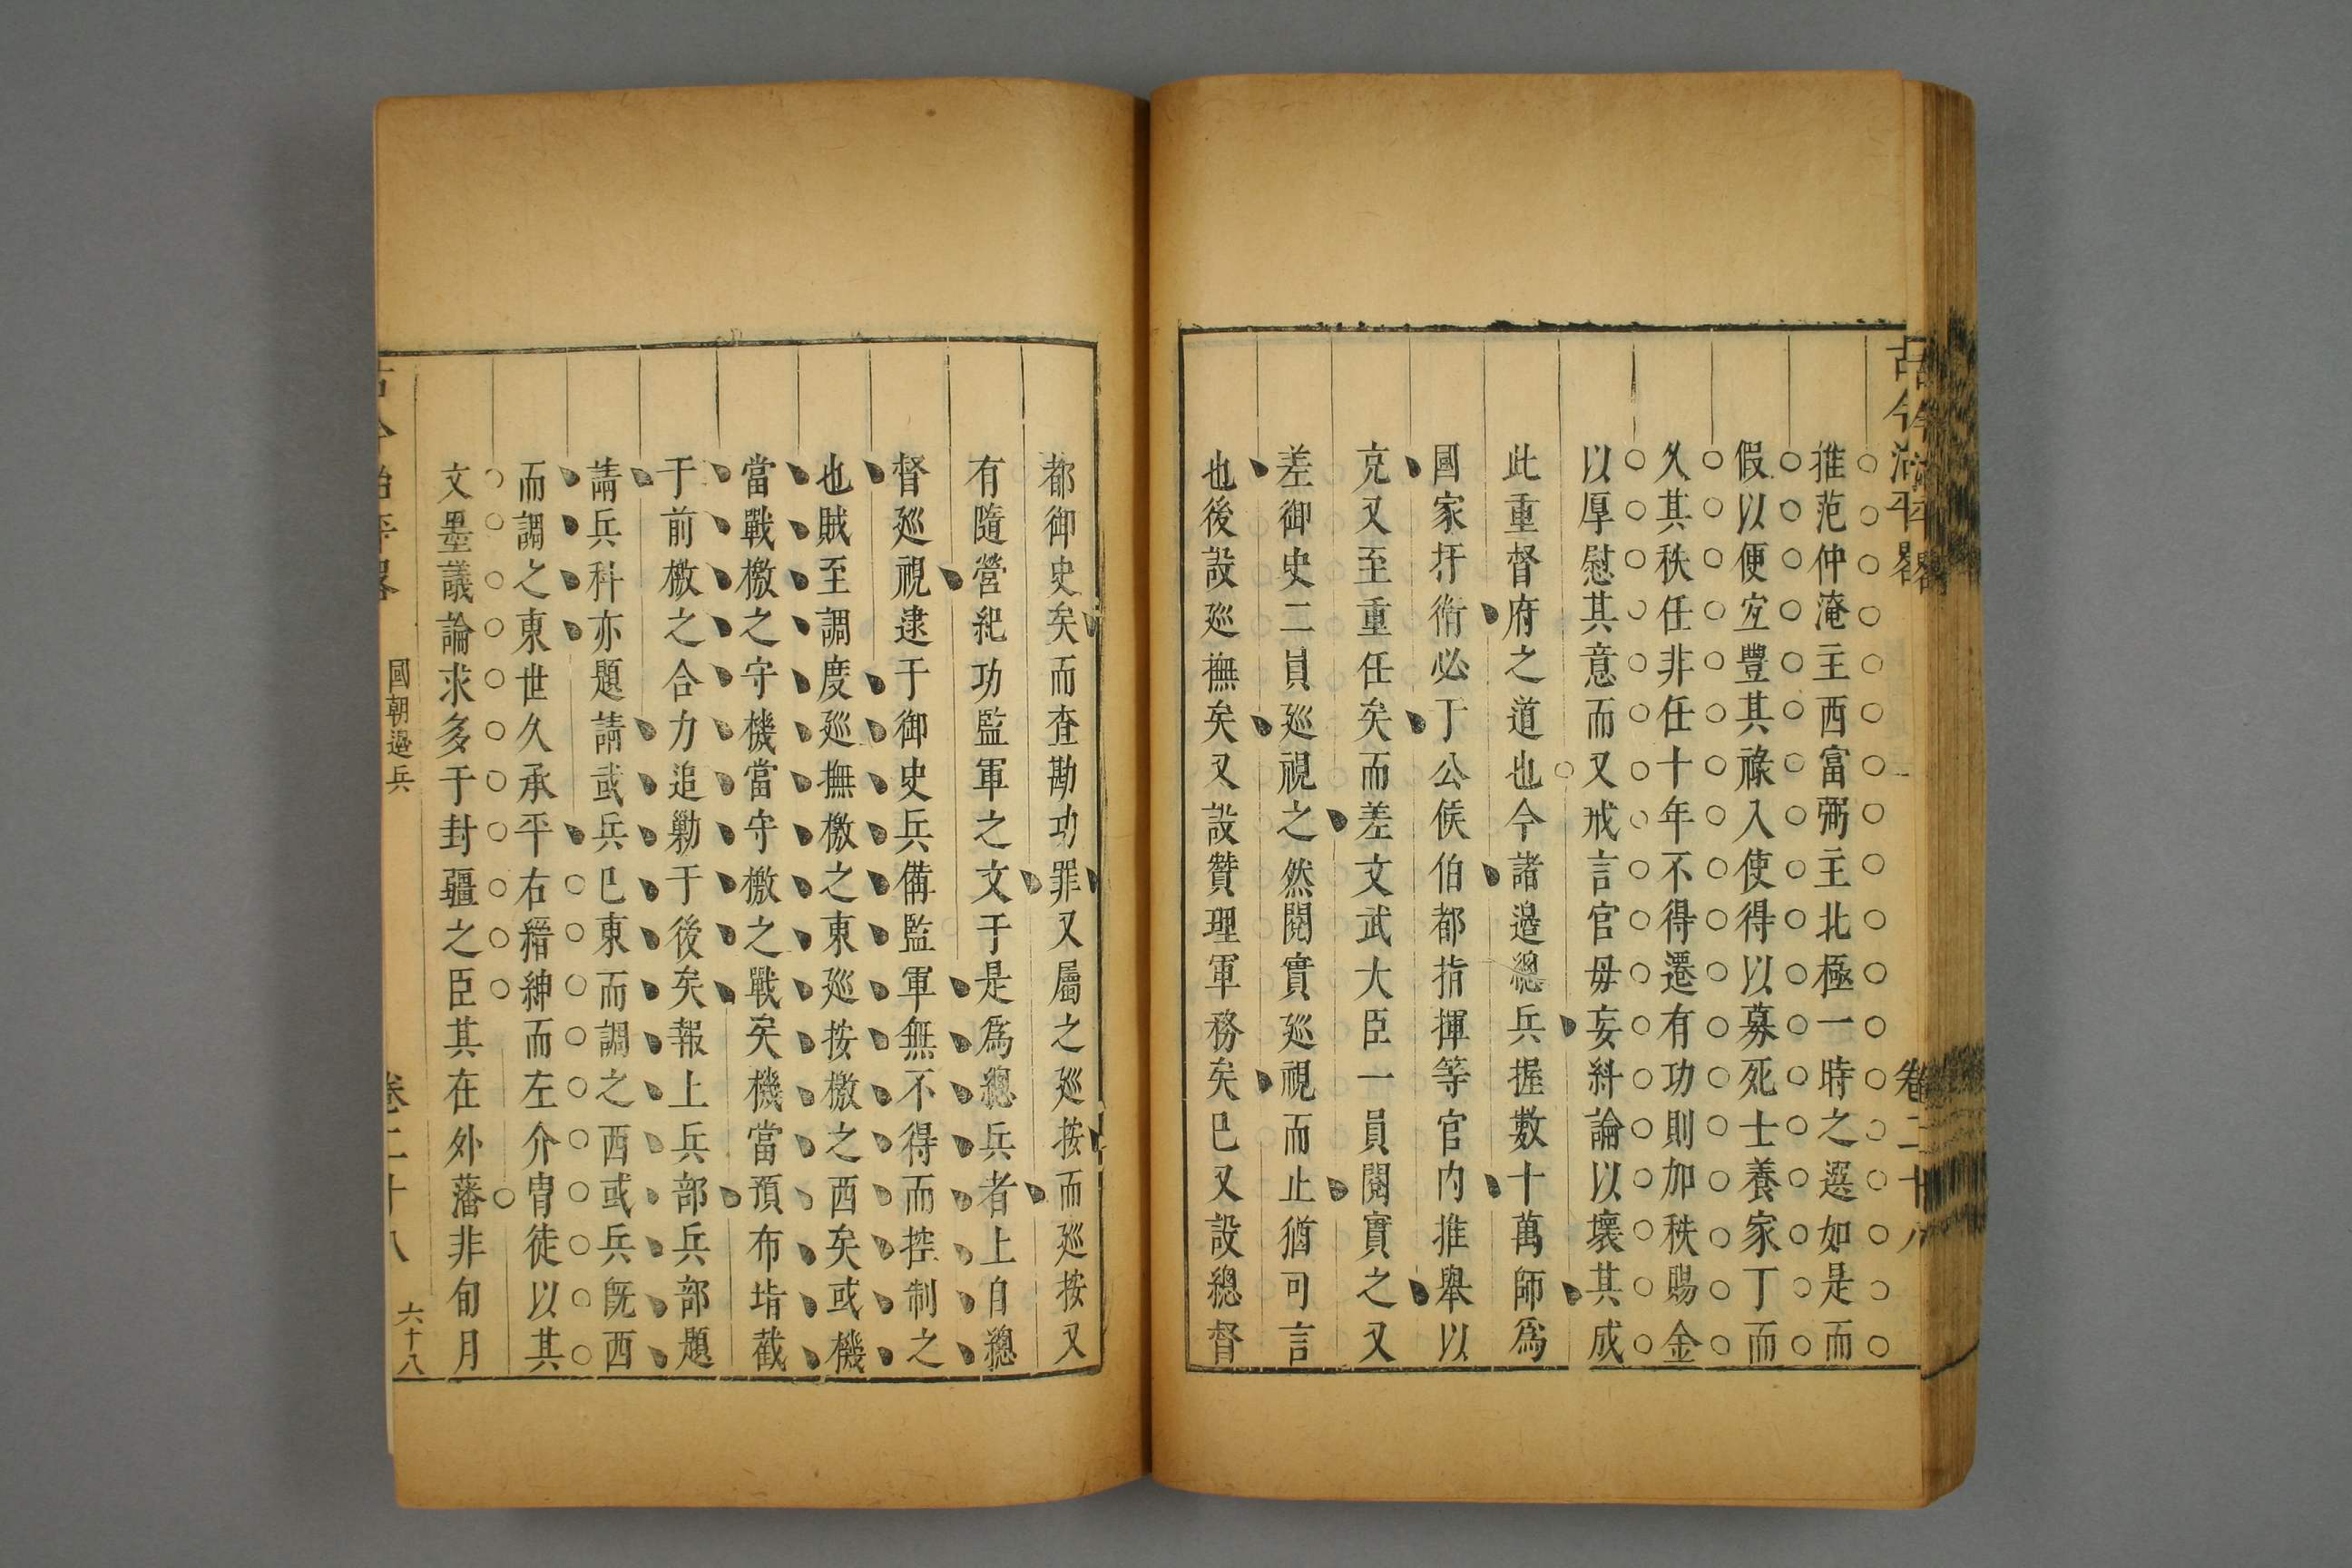 古今治平畧
卷二十八
推范仲淹主西富弼主北極一時之選如是而
假以便宜豐其祿入使得以募死士養家丁而
久其秩任非任十年不得遷有功則加秩賜金
以厚慰其意而又戒言官毋妄糾論以壞其成
此重督府之道也今諸邉總兵握數十萬師爲
國家扞衞必于公侯伯都指揮等官内推舉以
克又至重任矣而差文武大臣一員閱實之又
差御史二員廵視之然閱實廵視而止猶可言
也後設廵撫矣又設贊理軍務矣巳又設總督
都御史矣而查勘功罪又屬之廵按而廵按又
有隨營紀功監軍之文于是爲總兵者上自總
督廵視逮于御史兵備監軍無不得而控制之
也賊至調度廵撫檄之東廵按檄之西矣或機
當戰檄之守機當守檄之戰矣機當預布堵截
于前檄之合力追勦于後矣報上兵部兵部題
請兵科亦題請或兵巳東而調之西或兵旣西
而調之東世久承平右縉紳而左介胄徒以其
文墨議論求多于封疆之臣其在外藩非旬月
古今治平畧
國朝邉兵
卷二十八
六十八